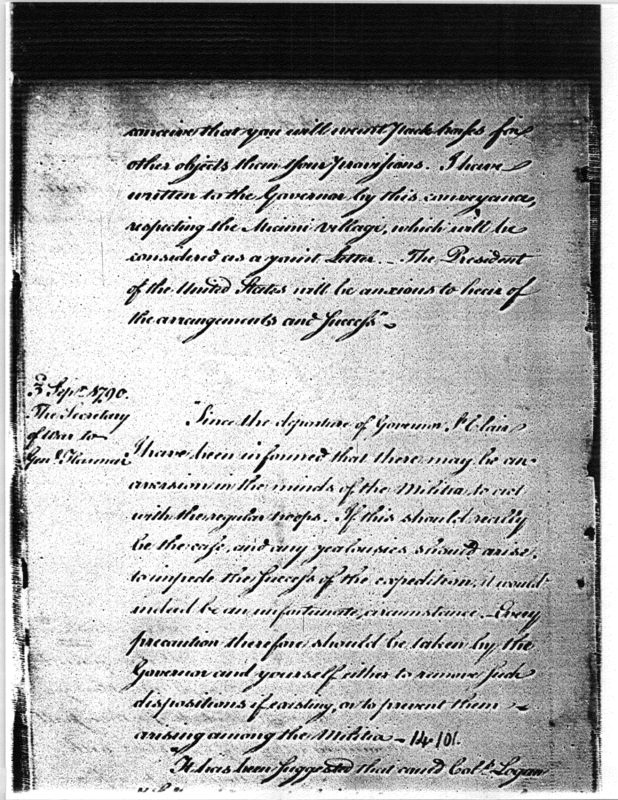 conceive that you will want pack horses for
other objects than your provisions. I have
written to the Governor by this conveyance,
respecting the Miami village, which will be
considered as a joint Letter. — The President
of the United States will be anxious to hear of
the arrangements and success" —
3 Sept. 1790.
The Secretary
of War to
Genl. Harmar
"Since the departure of Governor St Clair
I have been informed that there may be an
aversion in the minds of the Militia, to act
with the regular troops. If this should really
be the case, and any jealousies should arise,
to impede the success of the expedition, it would
indeed be an unfortunate, circumstance. — Every
precaution therefore should be taken by the
Governor and yourself either to remove such
dispositions if existing, or to prevent them —
arising among the Militia —
"It has been suggested that could Colo. Logan